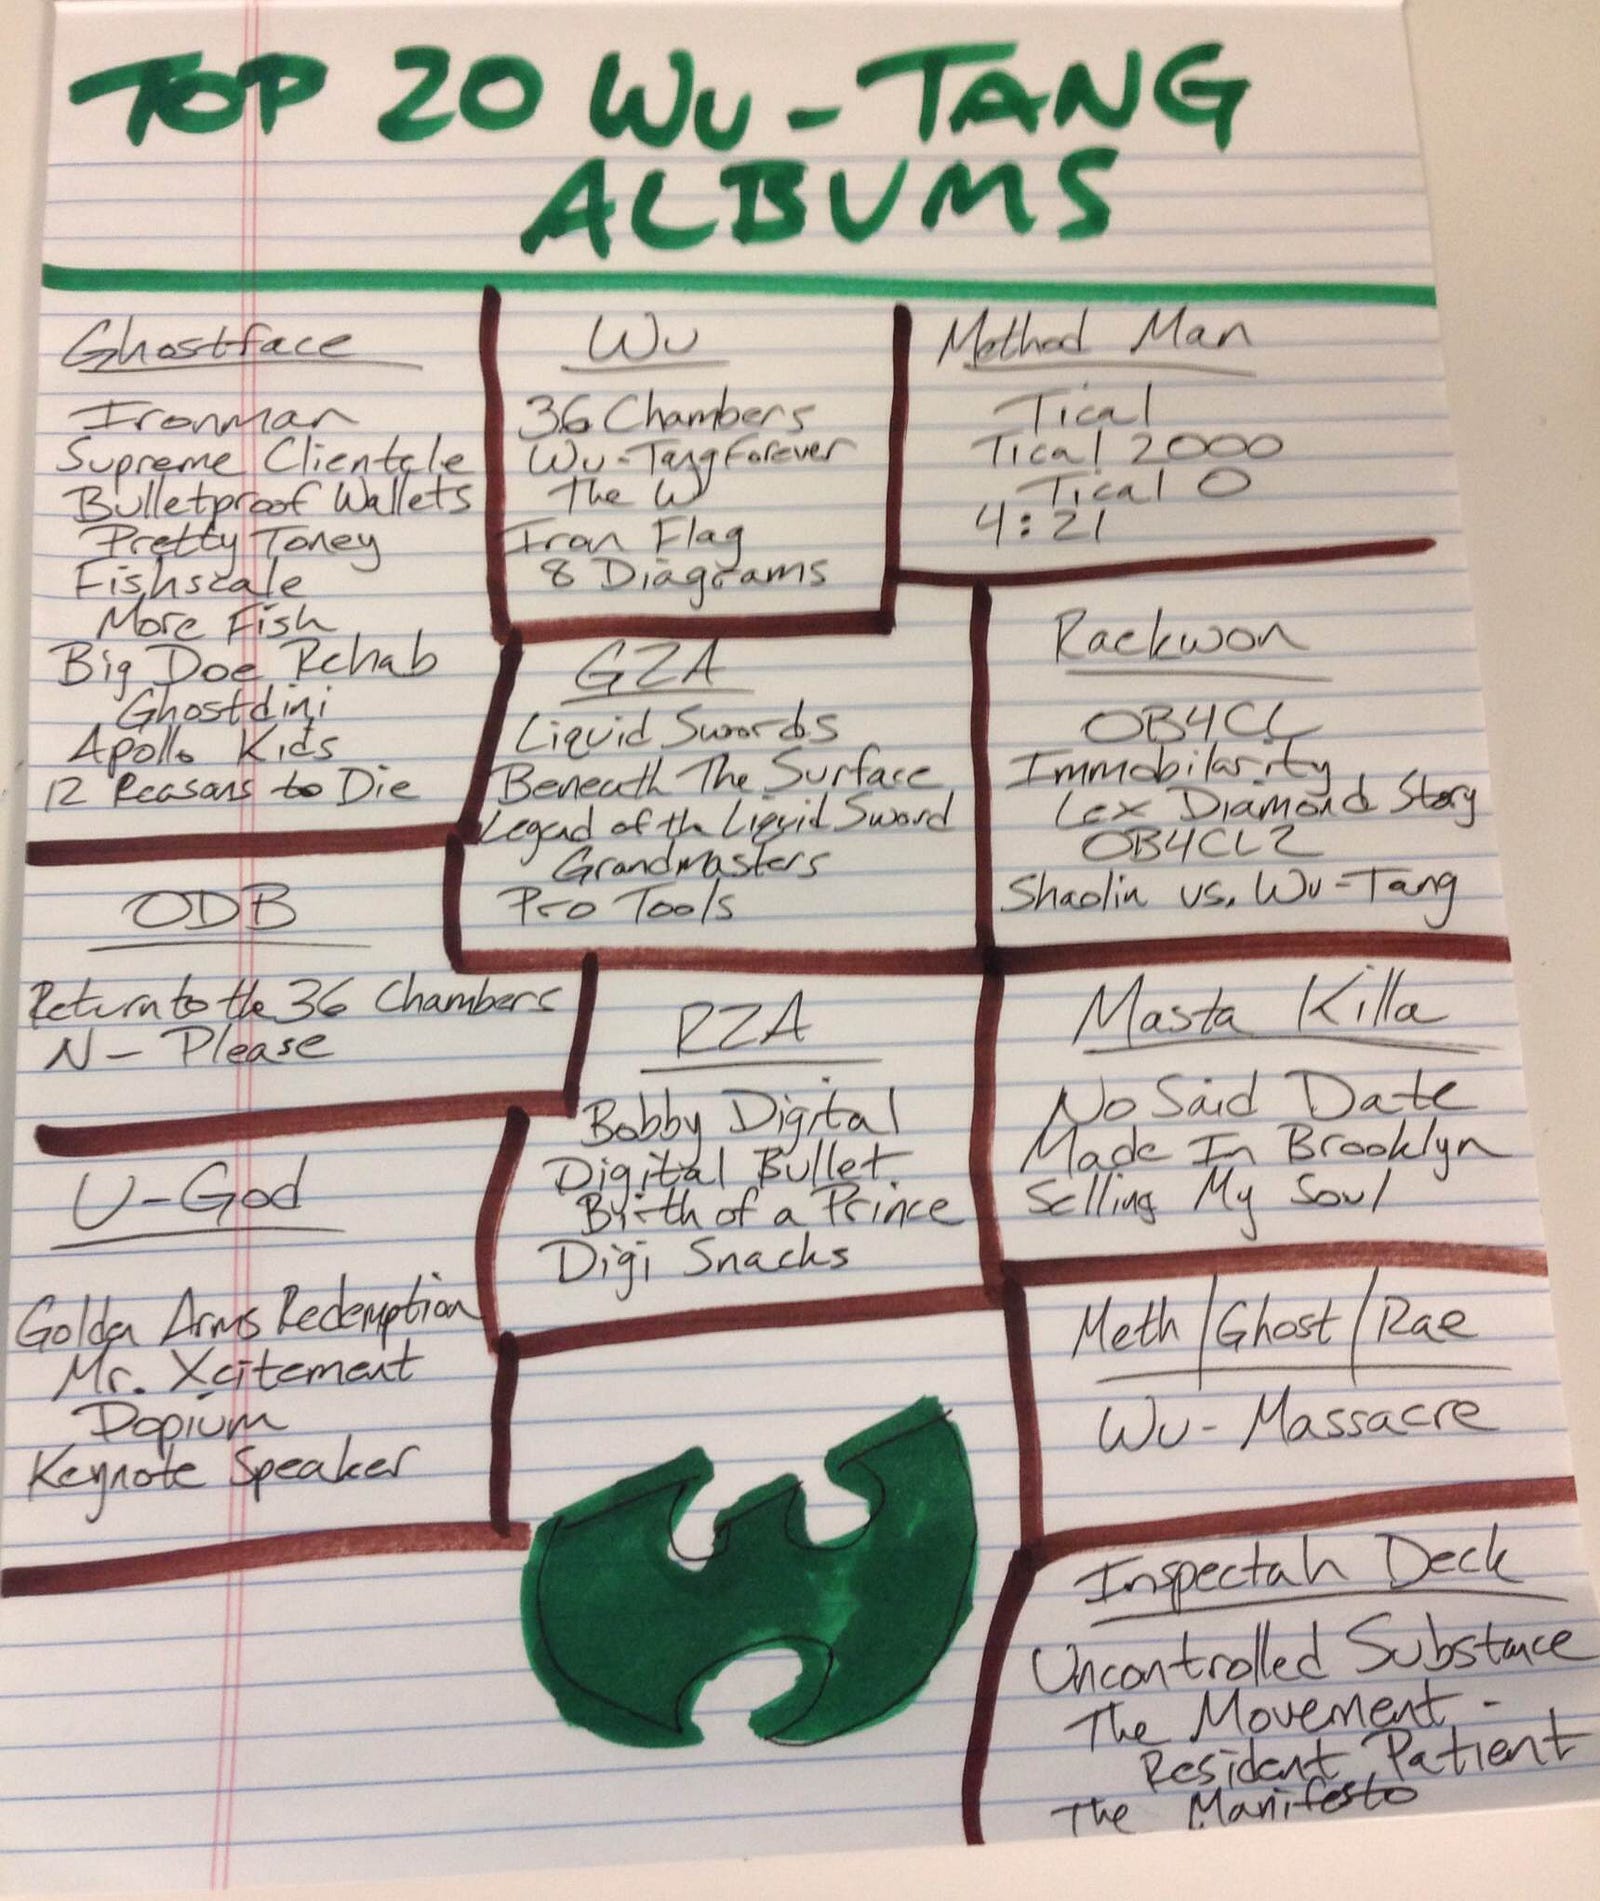 TOP 20 WU-TANG
ALBUMS
Ghostface
Ironman
Supreme Clientele
Bulletproof Wallets
Pretty Toney
Fishscale
More Fish
Big Doe Rehab
Ghostdini
Apollo Kids
12 Reasons to Die
Wu
36 Chambers
Wu-Tang Forever
The W
Iron Flag
8 Diagrams
Method Man
Tical
Tical 2000
Tical 0
4:21
GZA
Liquid Swords
Beneath The Surface
Legend of the Liquid Sword
Grandmasters
Pro Tools
Raekwon
OB4CL
Immobilarity
Lex Diamond Story
OB4CL2
Shaolin vs. Wu-Tang
ODB
Return to the 36 Chambers
N- Please
RZA
Bobby Digital
Digital Bullet
Birth of a Prince
Digi Snacks
Masta Killa
No Said Date
Made In Brooklyn
Selling My Soul
U-God
Golden Arms Redemption
Mr. Xcitement
Dopium
Keynote Speaker
Meth/Ghost/Rae
Wu-Massacre
Inspectah Deck
Uncontrolled Substance
The Movement -
Resident Patient
The Manifesto